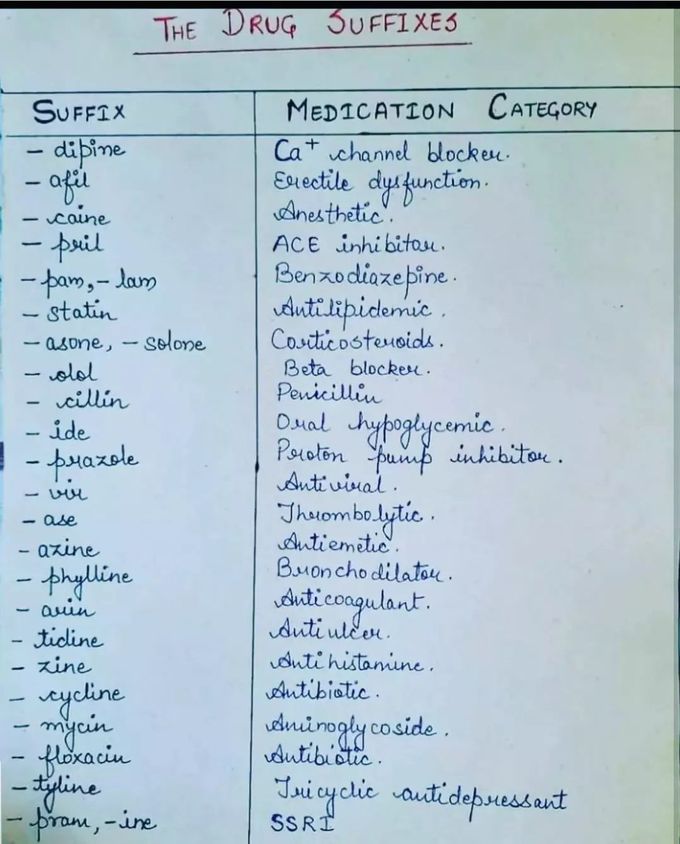 THE DRUG SUFFIXES
SUFFIX MEDICATION CATEGORY
- dipine Ca+ channel blocker.
- afil Erectile dysfunction.
- caine Anesthetic.
- pril ACE inhibitor.
- pam, - lam Benzodiazepine.
- statin Antilipidemic.
- asone, - solone Corticosteroids.
- olol Beta blocker.
- cillin Penicillin
- ide Oral hypoglycemic.
- prazole Proton pump inhibitor.
- vir Antiviral.
- ase Thrombolytic.
- azine Antiemetic.
- phylline Bronchodilator.
- arin Anticoagulant.
- tidine Antiulcer.
- zine Antihistamine.
- cycline Antibiotic.
- mycin Aminoglycoside.
- floxacin Antibiotic.
- tyline Tricyclic antidepressant
- pram, - ine SSRI